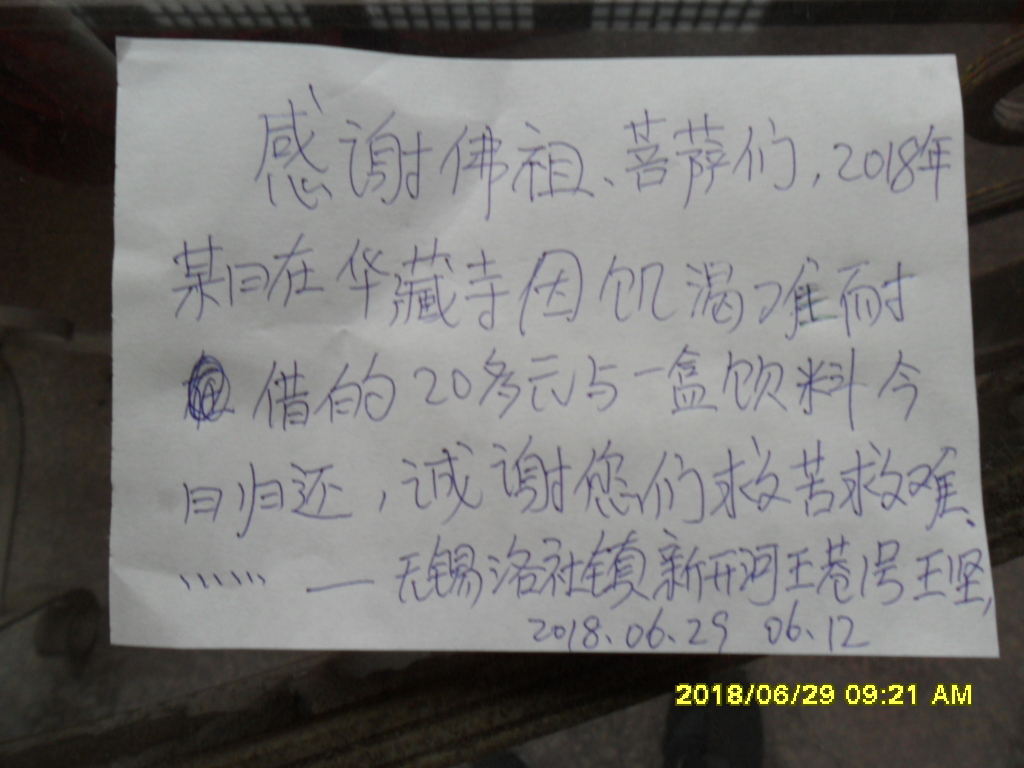 感谢佛祖、菩萨们,2018年
某日在华藏寺因饥渴难耐
借的20多元与一盒饮料今
日归还,诚谢您们救苦救难、
…… —无锡洛社镇新开河王巷1号王坚,
2018.06.29 06.12
2018/06/29 09:21 AM